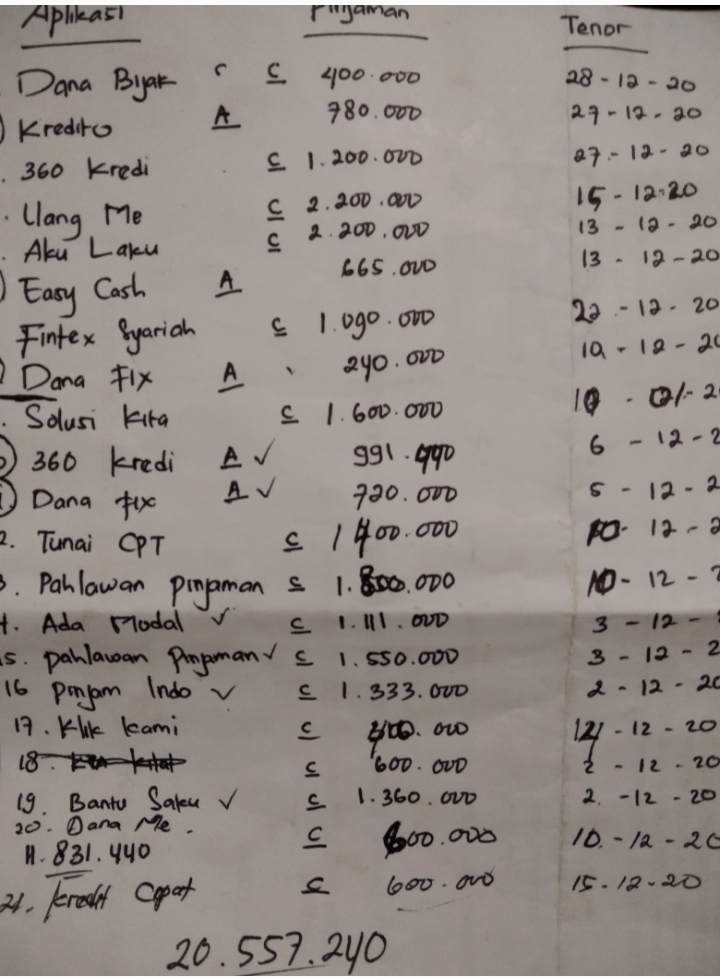 Aplikasi Pinjaman Tenor
Dana Bijak C 400.000 28-12-20
Kredito A 780.000 27-12-20
. 360 Kredi C 1.200.000 27-12-20
. Uang Me C 2.200.000 15-12-20
. Aku Laku C 2.200.000 13-12-20
Easy Cash A 665.000 13-12-20
Fintex Syariah C 1.090.000 22-12-20
Dana Fix A 240.000 12-20
. Solusi Kita C 1.600.000
360 Kredi A ✓ 991.440 6-12-2
Dana fix A ✓ 720.000 5-12-2
2. Tunai CPT C 1400.000 10-12-2
3. Pahlawan pinjaman C 1.800.000 10-12-2
4. Ada Modal ✓ C 1.111.000 3-12-
15. pahlawan Pinjaman ✓ C 1.550.000 3-12-2
16 pinjam Indo ✓ C 1.333.000 2-12-20
17. Klik kami C 12-20
18. C 600.000 2-12-20
19. Bantu Saku ✓ C 1.360.000 2-12-20
20. Dana Me. C 600.000 10-12-20
11.831.440
21. kredit Cepat C 600.000 15-12-20
20.557.240